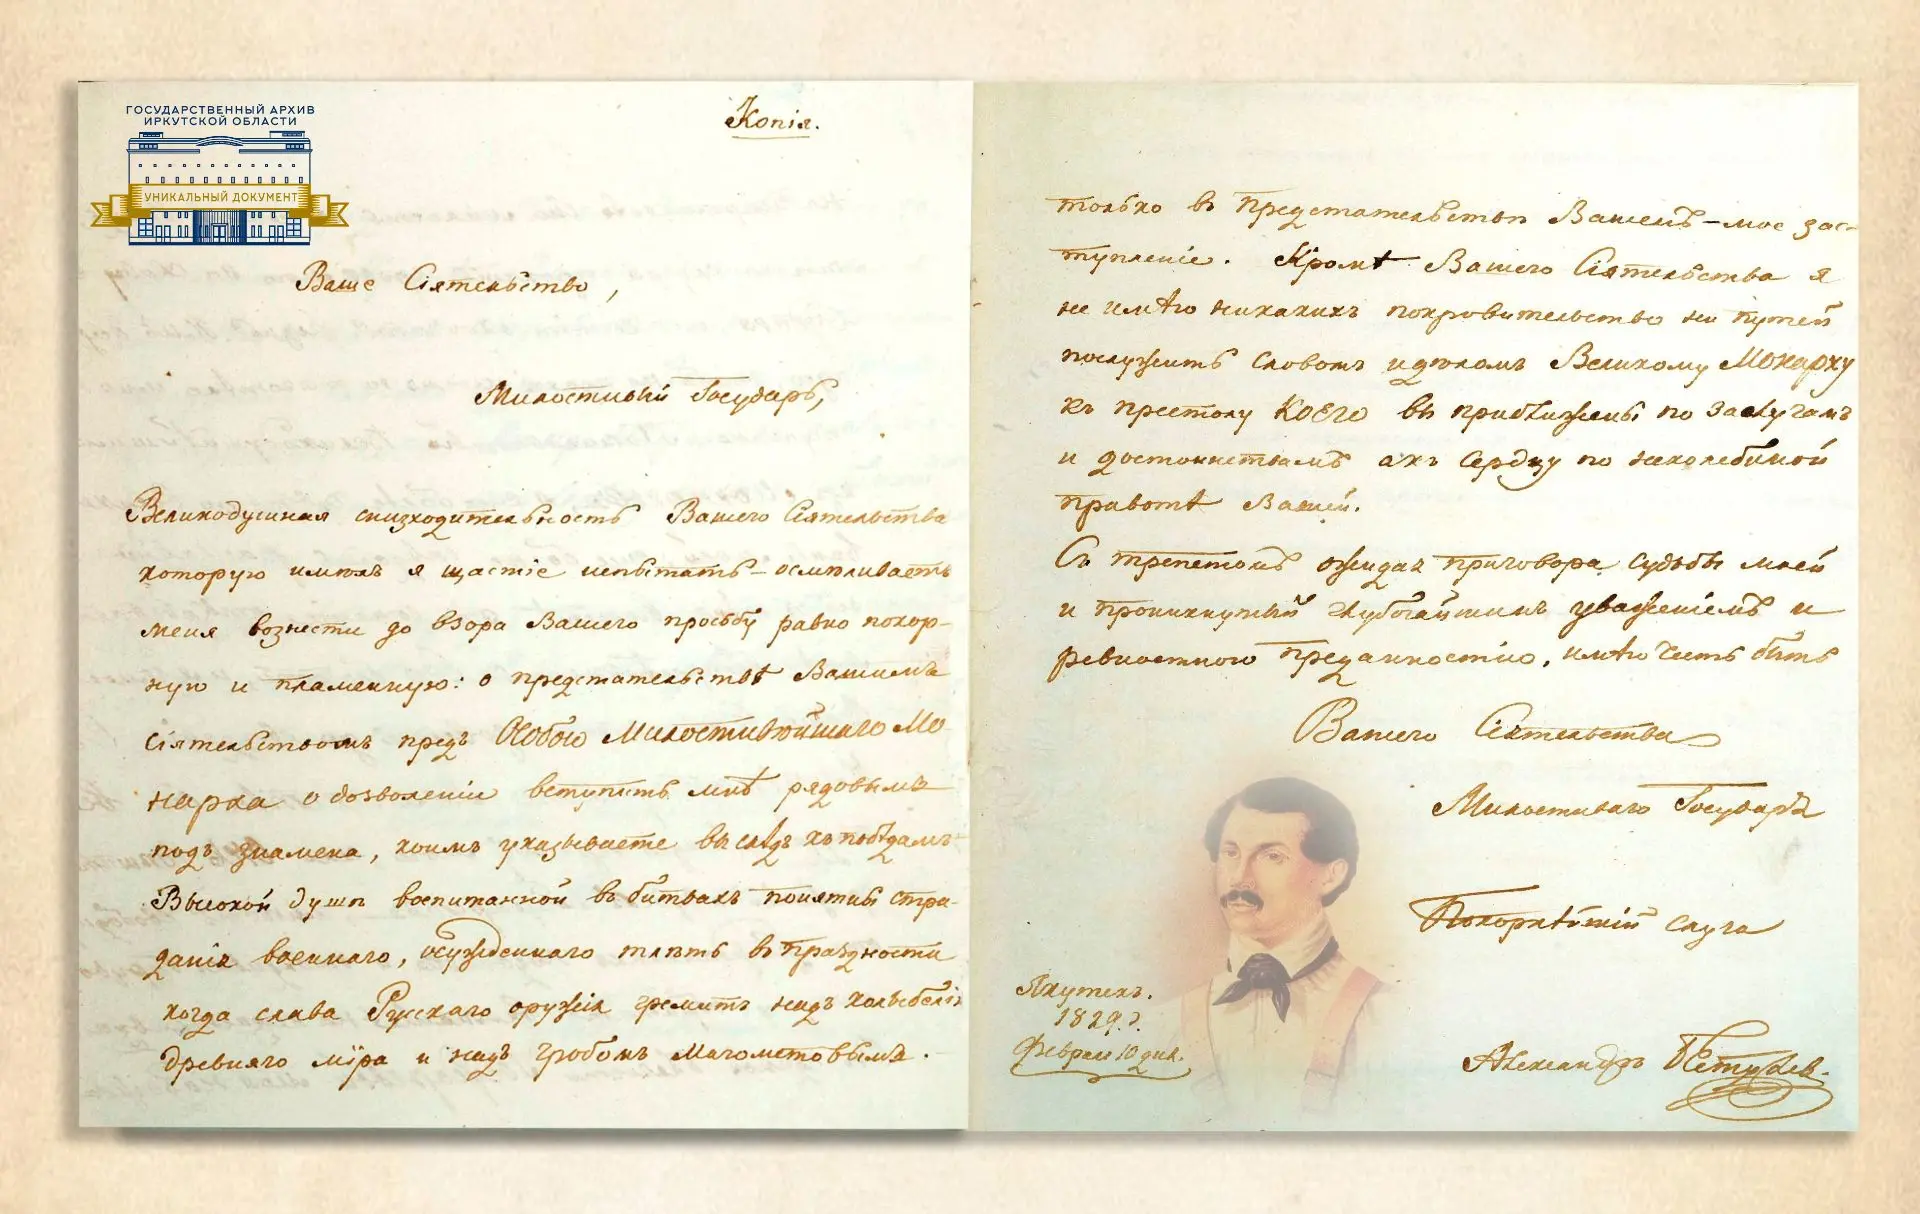 ГОСУДАРСТВЕННЫЙ АРХИВ
ИРКУТСКОЙ ОБЛАСТИ
УНИКАЛЬНЫЙ ДОКУМЕНТ
Копія.
Ваше Сіятельство,
Милостивый Государь,
Великодушная снизходительность Вашего Сіятельства
которую имѣлъ я щастіе испытать – осмѣливаетъ
меня вознести до взора Вашего просьбу равно покор-
ную и пламенную: о предстательствѣ Вашимъ
Сіятельствомъ предъ Особою Милостивѣйшаго Мо
нарха о дозволеніи вступить мнѣ рядовымъ
подъ знамена, коимъ указываете вы слѣдъ къ побѣдамъ
Высокой душѣ воспитанной въ битвахъ понятны стра-
данія военнаго, осужденнаго тлѣть въ праздности
когда слава Рускаго оружія гремитъ надъ колыбелію
древняго міра и надъ гробомъ Магометовымъ.
только въ предстательствѣ Вашемъ – мое зас-
тупленіе. Кромѣ Вашего Сіятельства я
не имѣю никакихъ покровительство ни путей
послужить словомъ и дѣломъ Великому Монарху
къ престолу Коего вы приближены по заслугамъ
и достоинствамъ а къ сердцу по неколебимой
правотѣ Вашей.
Съ трепетомъ ожидая приговора судьбы моей
и проникнутый глубочайшимъ уваженіемъ и
ревностного преданностію, имѣю честь быть
Вашего Сіятельства
Милостиваго Государя
Покорнѣйшій слуга
Якутскъ.
1829.г.
Февраля 10 дня.
Александръ Бестужев.